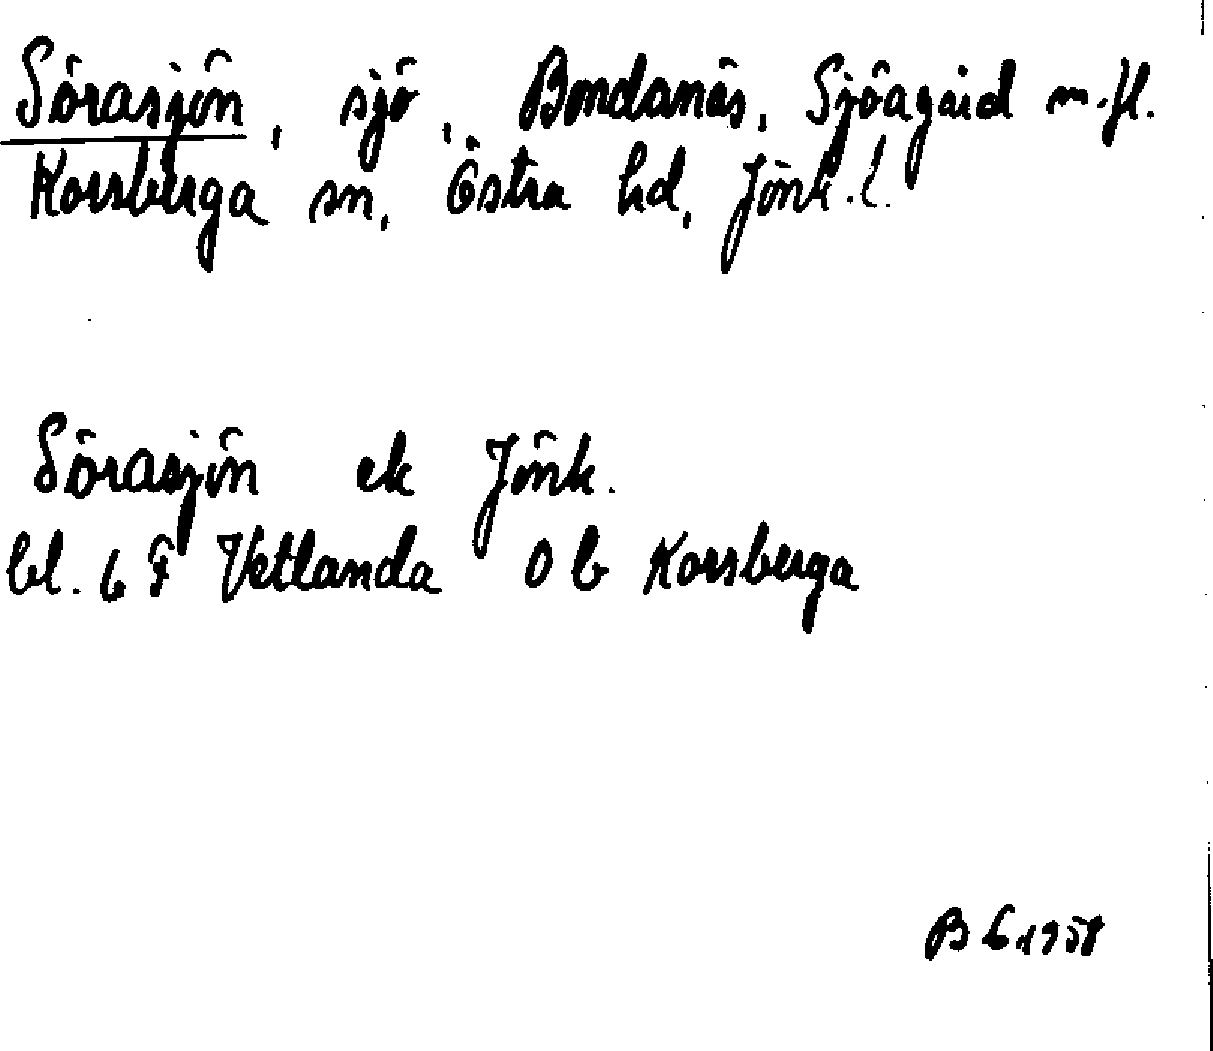 Sörasjön, sjö, Bondanäs, Sjöagård m.fl.
Korsberga sn, Östra hd, Jönk.l.
Sörasjön ek Jönk.
bl. 6 F Vetlanda 0 b Korsberga